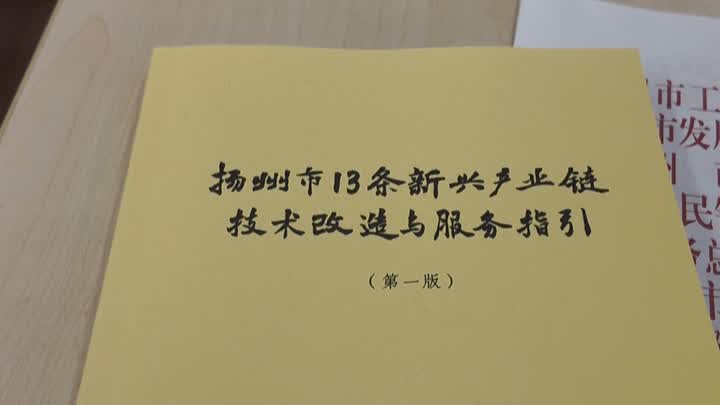 扬州市13条新兴产业链
技术改造与服务指引
(第一版)
市工
市发展
市
民
总
市